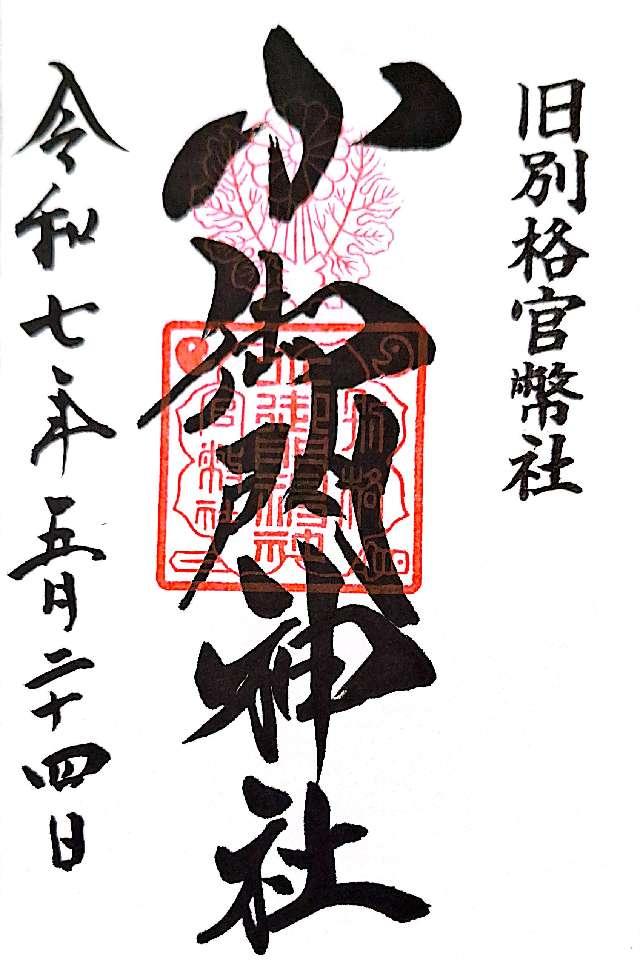 旧別格官幣社
小御門神社
令和七年五月二十四日